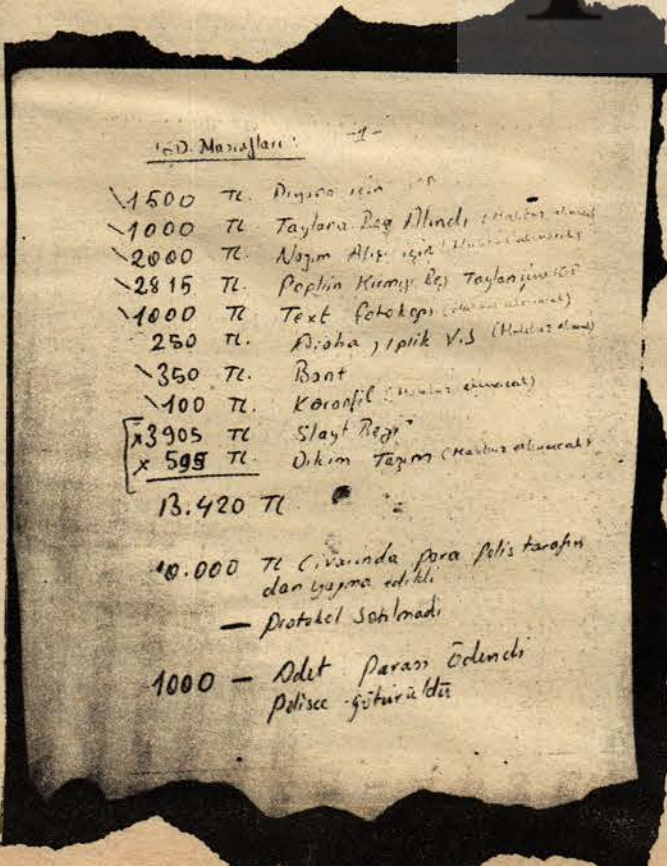 -1-
Masrafları:
1500 TL. için
1000 TL Taylana Bez Alındı (Makbuz alınacak)
2000 TL. Nazım Afiş için (Makbuz alınacak)
2815 TL. Poplin Kumaş Bez Taylan
1000 TL Text fotokopi (Makbuz alınacak)
250 TL. iplik V.S (Makbuz alınacak)
350 TL. Bant
100 TL. Karanfil (Makbuz alınacak)
x3905 TL Slayt Bezi
x 595 TL. Dikim Tazim (Makbuz alınacak)
13.420 TL
0.000 TL Civarında para Polis tarafın
dan yağma edildi
— Protokol Satılmadı
1000 — Adet Parası Ödendi
Polisce götürüldü